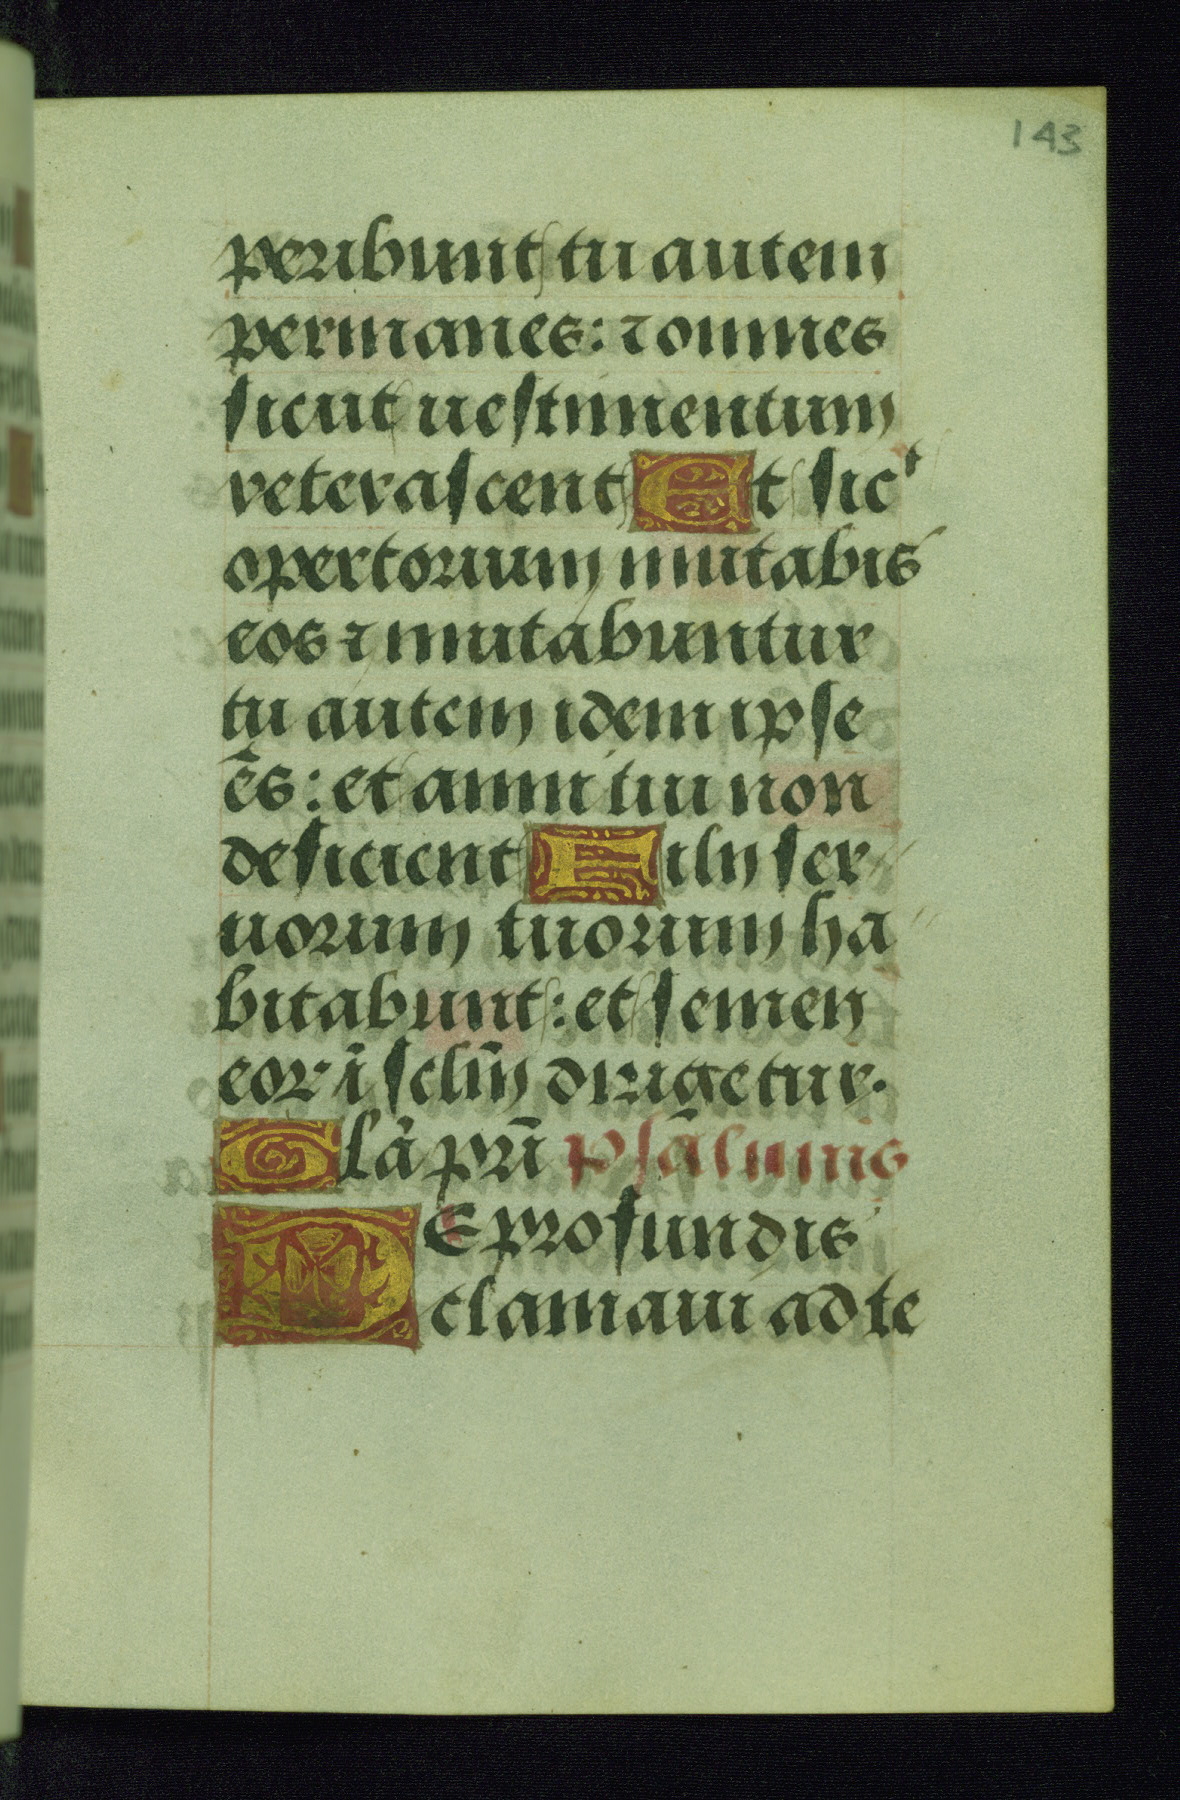 143
peribunt tu autem
permanes: ⁊ omnes
sicut uestimentum
veterascent Et sicᵗ
opertorium mutabis
eos ⁊ mutabuntur
tu autem idem ipse
ēs: et anni tui non
deficient Filij ser
uorum tuorum ha
bitabunt: et semen
eor ī sclm̄ dirigetur.
Glā pri̅ psālmus
DE profundis
clamaui ad te